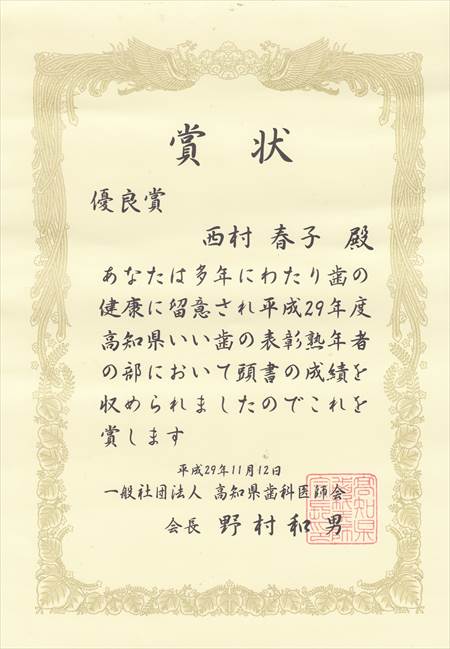 賞状
優良賞
西村 春子 殿
あなたは多年にわたり歯の
健康に留意され平成29年度
高知県いい歯の表彰熟年者
の部において頭書の成績を
収められましたのでこれを
賞します
平成29年11月12日
一般社団法人 高知県歯科医師会
会長 野村和男